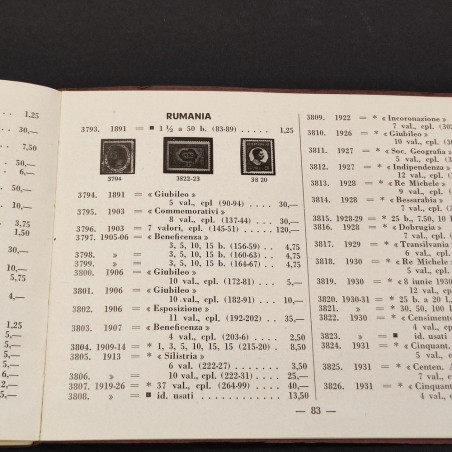 1,25
30,—
7,50
50,—
6,—
30,—
10,—
3,75
1,50
30,—
10,—
5,75
4,—
1,25
5,—
5,—
5,—
5,—
5,—
5,—
RUMANIA
3793. 1891 = ■ 1 ½ a 50 b. (83-89) . . . . . 1,25
3794 3822-23 38 20
3794. 1891 = « Giubileo »
5 val., cpl. (90-94) . . . . 30,—
3795. 1903 = « Commemorativi »
8 val., cpl. (137-44) . . . 30,—
3796. 1903 = 7 valori, cpl. (145-51) . . . . . 120,—
3797. 1905-06 = « Beneficenza »
3, 5, 10, 15 b. (156-59) . . 4,75
3798. » = 3, 5, 10, 15 b. (160-63) . . 4,75
3799. » = 3, 5, 10, 15 b. (164-67) . . 4,75
3800. 1906 = « Giubileo »
10 val., cpl. (172-81) . . . 5,—
3801. 1906 = « Giubileo »
10 val., cpl. (182-91) . . . 10,—
3802. 1906 = « Esposizione »
11 val., cpl. (192-202) . . . 35,—
3803. 1907 = « Beneficenza »
4 val., cpl. (203-6) . . . . 2,50
3804. 1909-14 = * 1, 3, 5, 10, 15 (215-20) . 8,50
3805. 1913 = * « Silistria »
6 val. (222-27) . . . . . . 3,50
3806. » = 10 val., cpl. (222-31) . . . . 25,—
3807. 1919-26 = * 37 val., cpl. (264-99) . . 40,—
3808. » = ■ id. usati . . . . . . . . . 13,50
3809. 1922 = * « Incoronazione »
7 val., cpl. (302
3810. 1926 = * « Giubileo »
10 val., cpl. (3
3811. 1927 = « Soc. Geografia
5 val., cpl. (3
3812. 1927 = * « Indipendenza »
12 val., cpl. (3
3813. 1928 = * « Re Michele »
9 val., cpl. (3
3814. 1928 = * « Bessarabia »
7 val., cpl. (3
3815. 1928-29 = * 25 b., 7.50, 10
3816. 1928 = * « Dobrugia »
7 val., cpl. (3
3817. 1929 = * « Transilvania
6 val., cpl. (3
3818. 1930 = * « Re Michele
5 val., cpl.
3819. 1930 = * « 8 iunie 1930
12 val., cpl.
3820. 1930-31 = * 25 b. a 20 l.,
3821. » = * 30, 50, 100
3822. 1930 = * « Censimento
4 val., cpl.
3823. » = ■ id. usati
3824. 1931 = * « Cinquant.
5 val., cpl.
3825. 1931 = * « Centen.
5 val., cpl.
3826. 1931 = * « Cinquant.
4 val., cpl.
— 83 —